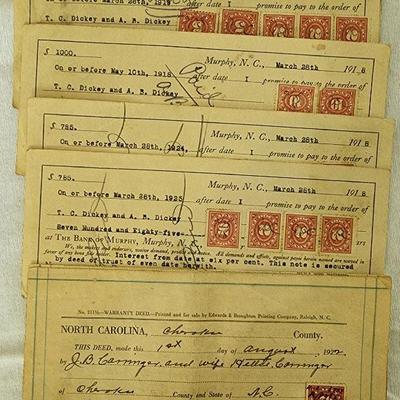 On or before March 28th, 1919
after date I promise to pay to the order of
T. C. Dickey and A. B. Dickey
$ 1000. Murphy, N. C., March 28th 1918
On or before May 10th, 1918 after date I promise to pay to the order of
T. C. Dickey and A. B. Dickey
Paid
$ 785. Murphy, N. C., March 28th 1918
On or before March 28th, 1924, after date I promise to pay to the order of
$ 785. Murphy, N. C., March 28th 1918
On or before March 28th, 1925 after date I promise to pay to the order of
T. C. Dickey and A. B. Dickey
Seven Hundred and Eighty-five
AT THE BANK OF MURPHY, MURPHY, N. C.
Interest from date at six per cent. This note is secured
by deed of trust of even date herewith.
WARRANTY DEED.—Printed and for sale by Edwards & Broughton Printing Company, Raleigh, N. C.
NORTH CAROLINA, Cherokee County.
THIS DEED, made this 1st day of August, 1922
by J. B. Carringer and wife Carringer
of Cherokee County and State of N.C.